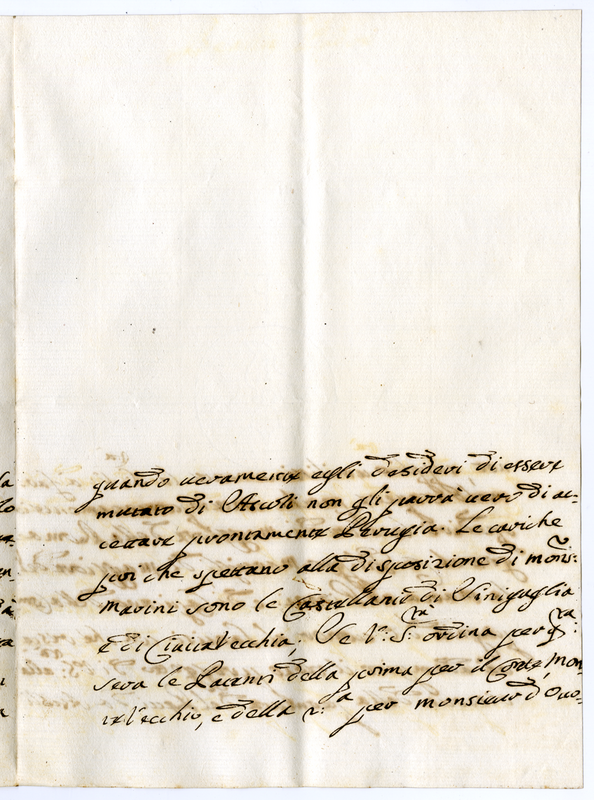 quando ueramente egli desideri di essere
mutato di Ascoli non gli parrà uero di ac-
cettare prontamente Perugia. Le cariche
poi che spettano alla disposizione di mons:
marini sono le Castellanie di Sinigaglia
e di Ciuita Vecchia; Se V: S: ordina per
sera le Patenti della prima per il Conte Mon
te Vecchio, e della 2:a per monsieur d'Ouo-